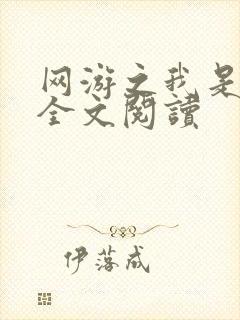 网游之我是
全文閱讀
伊落成